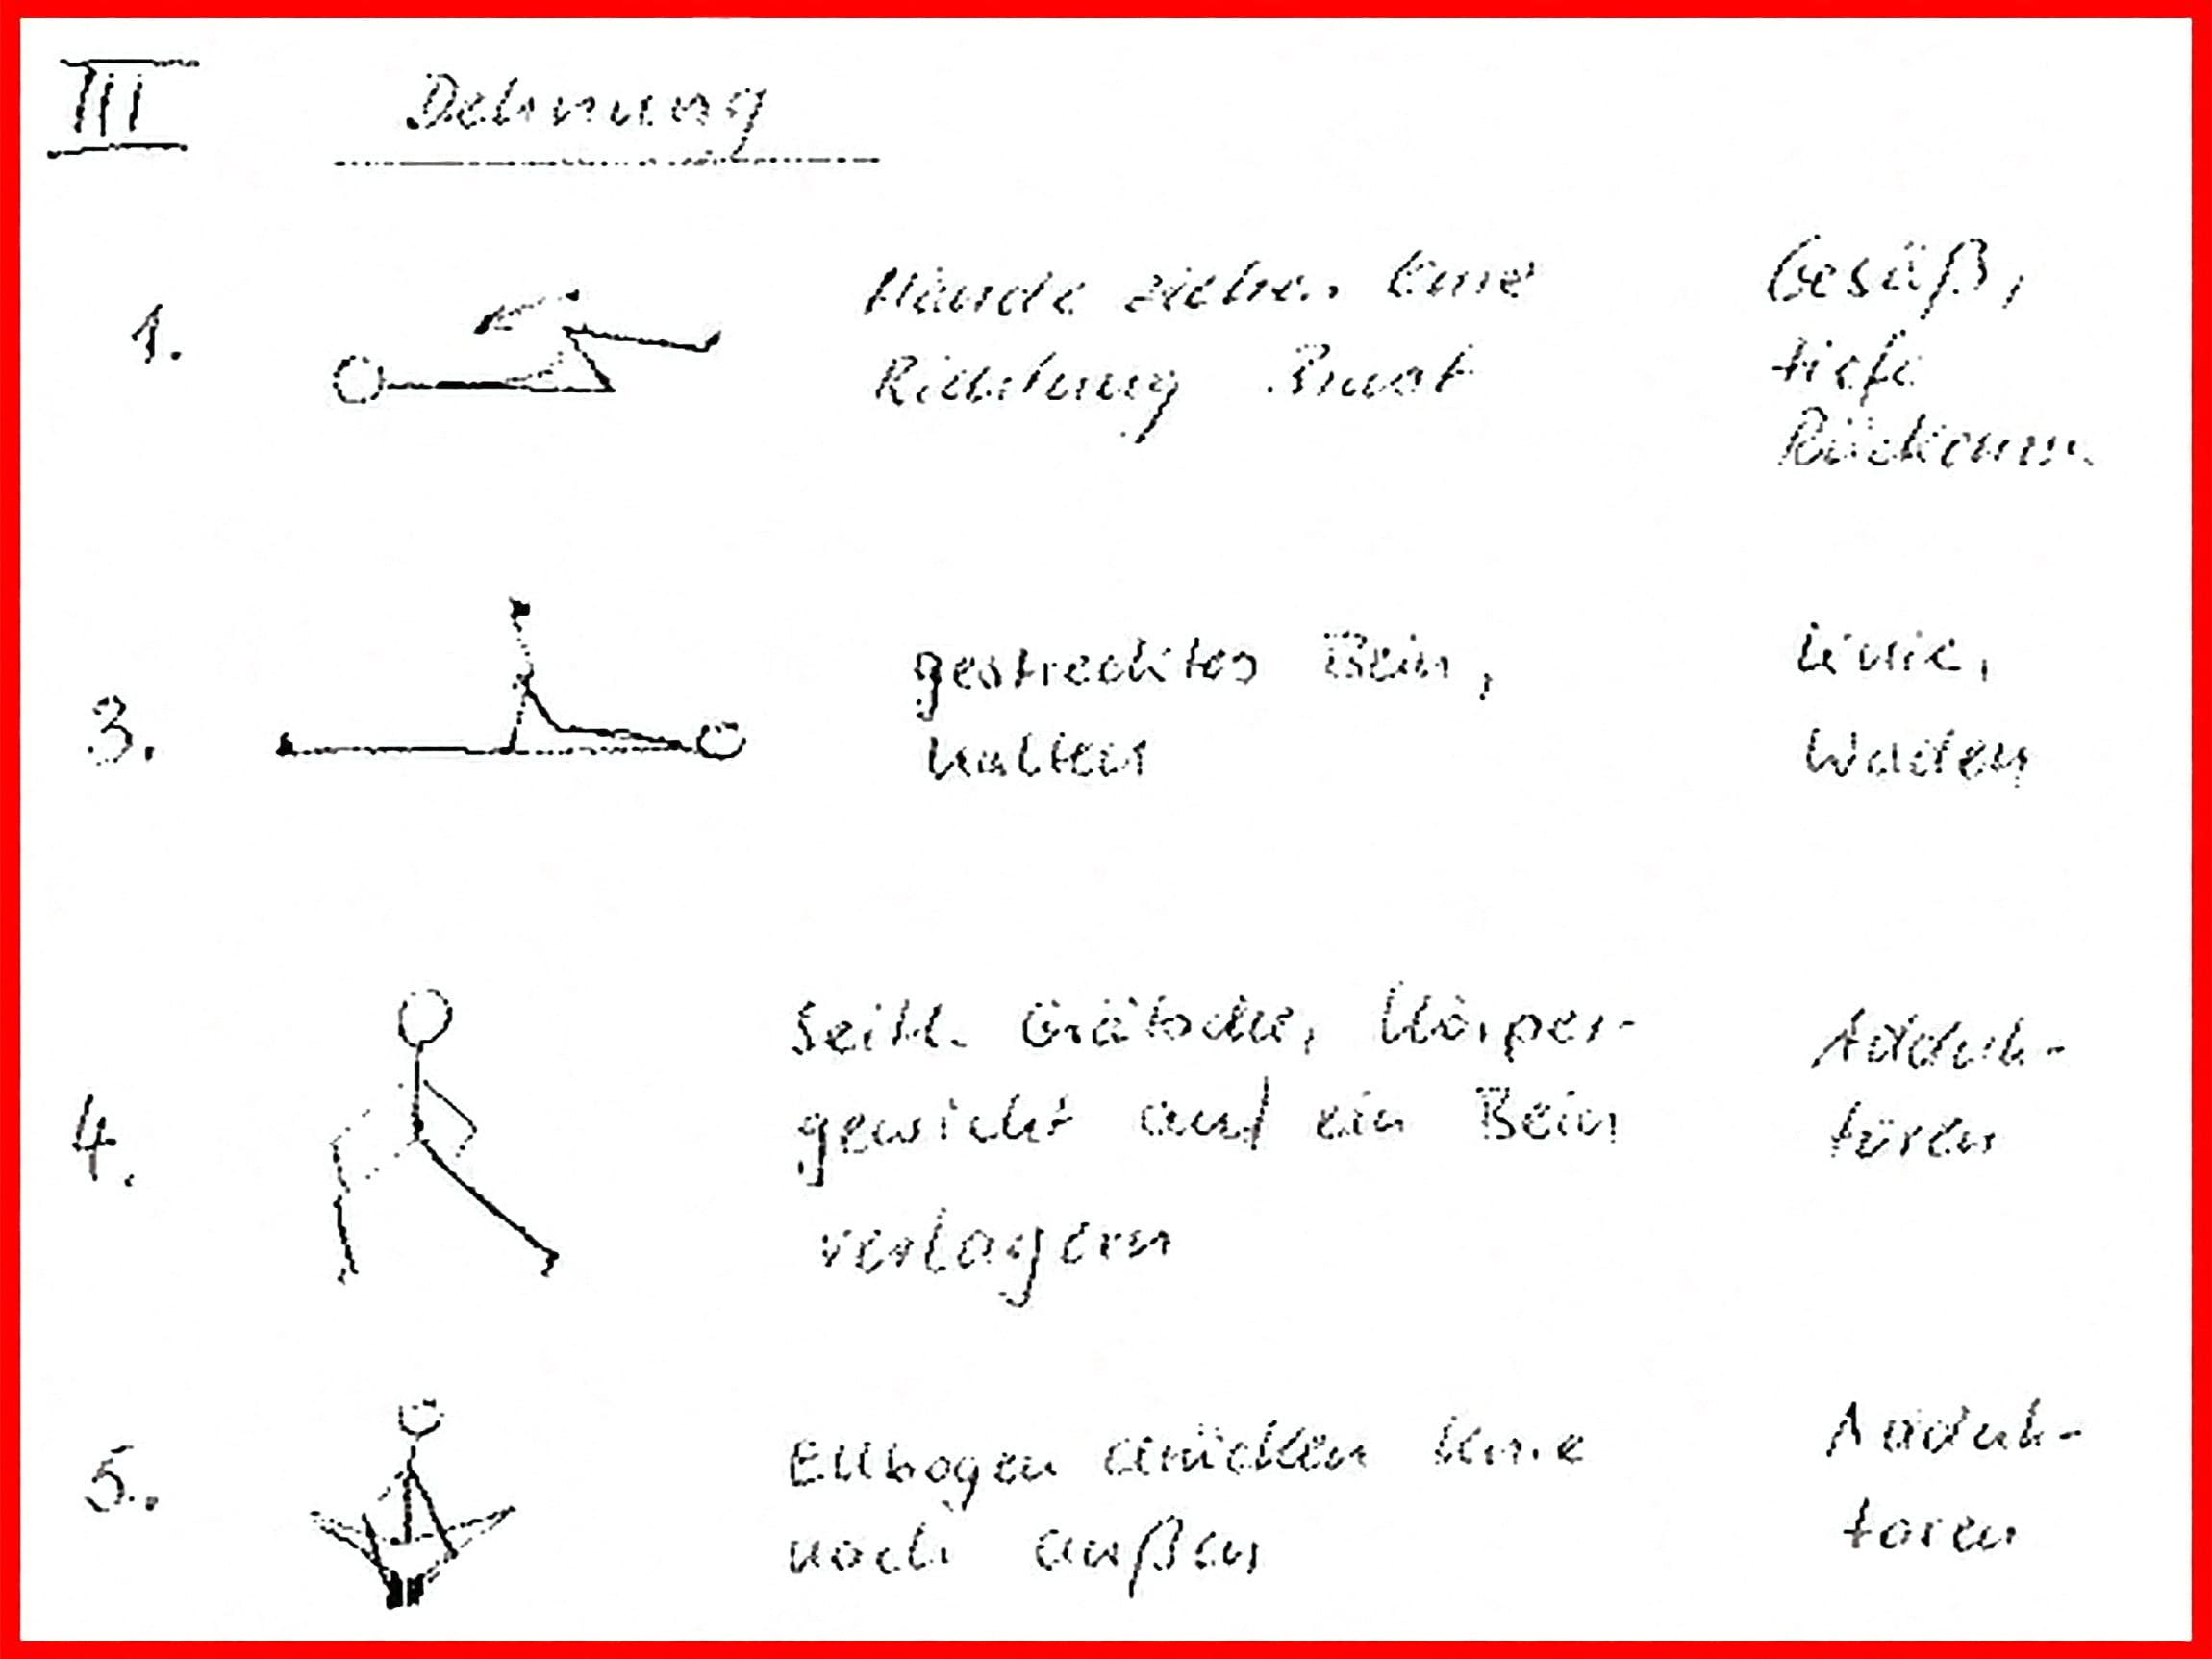 III Dehnung
1. Hände ziehen Knie Gesäß,
Richtung Brust tiefe
3. gestrecktes Bein, Knie,
halten Waden
4. Seitl. Grätsche, Körper- Adduk-
gewicht auf ein Bein toren
verlagern
5. Ellbogen drücken Knie Adduk-
nach außen toren